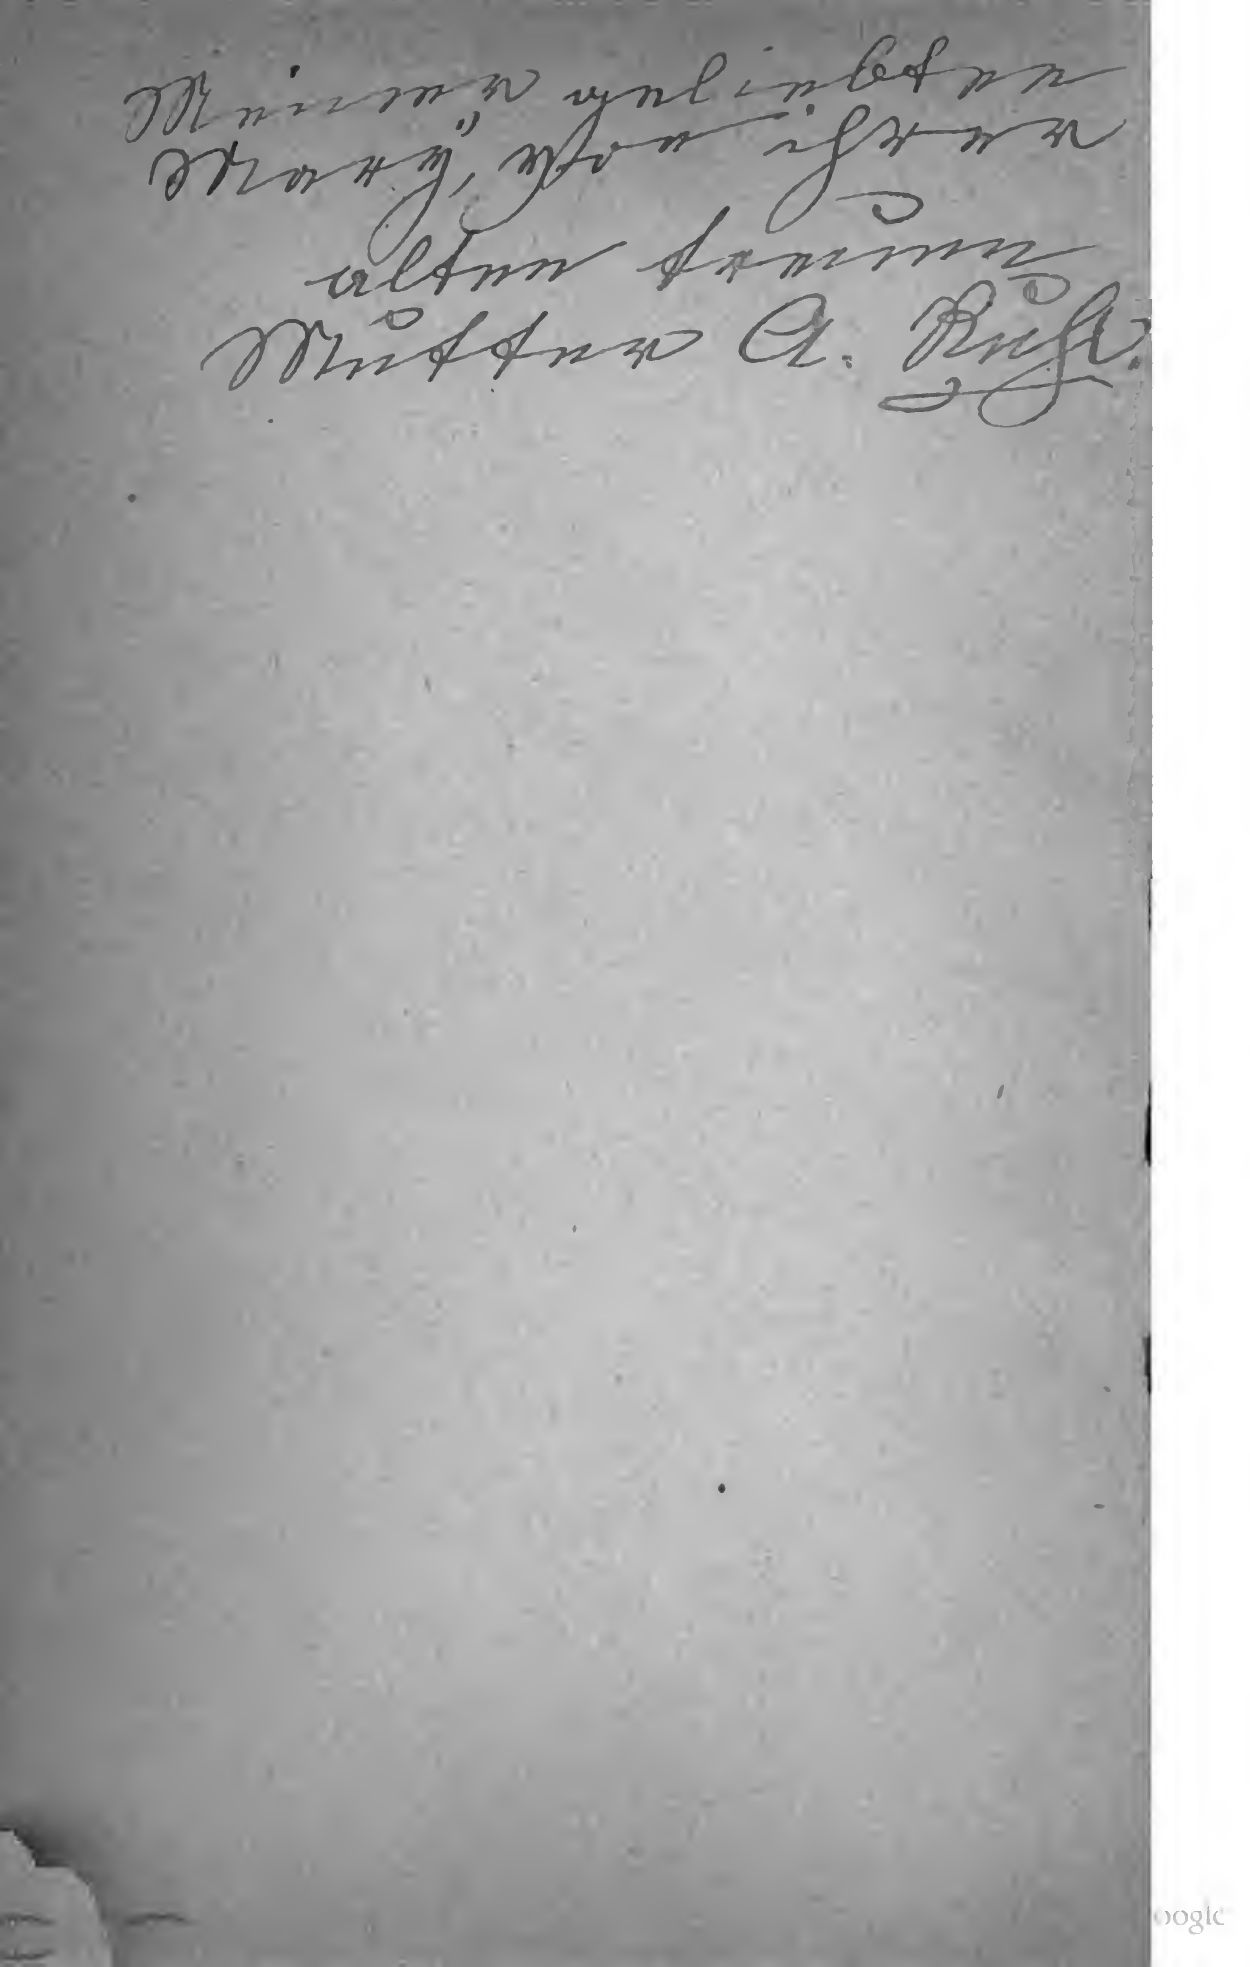 Meiner geliebten
Mary, von ihrer
alten treuen
Mutter A. Ruhl.
oogle